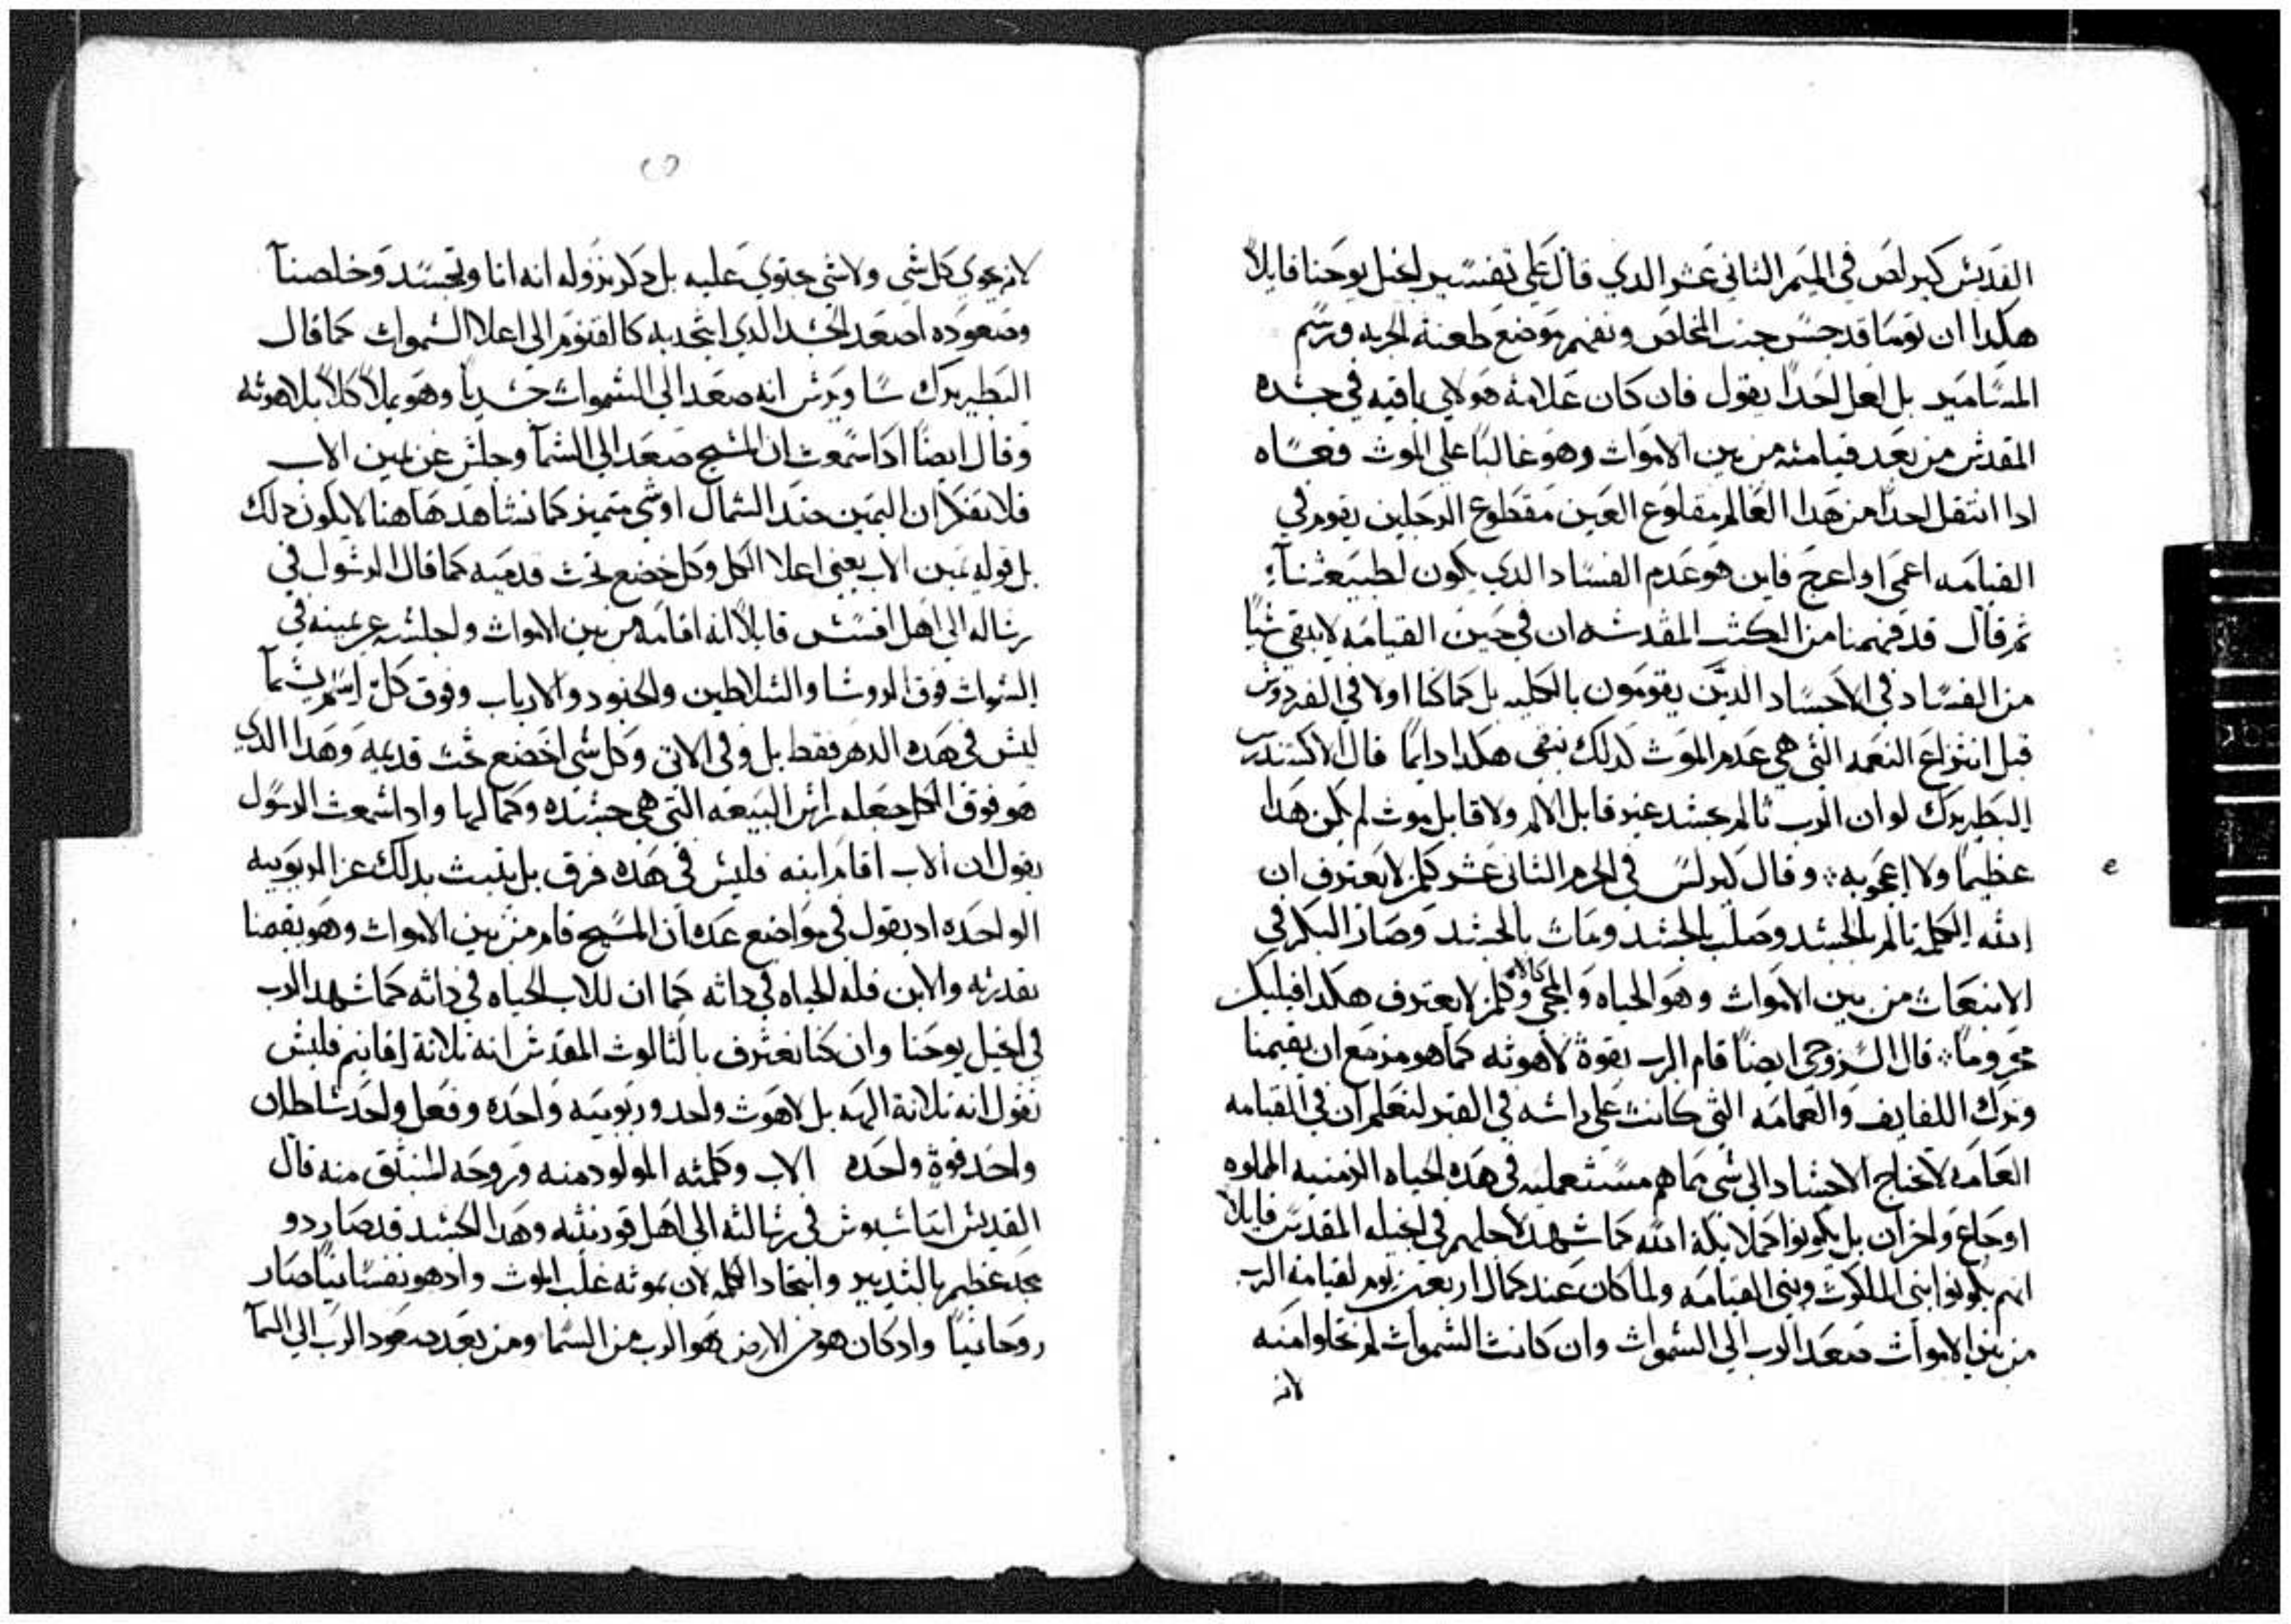 القديس كيرلص في الميمر التاني عشر الدي قال علي تفسير انجيل يوحنا قايلاً
هكدا ان توما قد جس جنب المخلص وتفهم موضع طعنة الحربه ورسم
المسامير بل لعل احداً يقول فان كان علامة هولاي باقيه في جسده
المقدس من بعد قيامته من بين الاموات وهو غالباً على الموت فعساه
ادا انتقل احداً من هدا العالم مقلوع العين مقطوع الرجلين يقوم في
القيامه اعمى او اعرج فاين هو عدم الفساد الدي يكون لطبيعتنا
تم قال قد فهمنا من الكتب المقدسه ان في حين القيامه لا يبقى شياً
من الفساد في الاجساد الدين يقومون بالكليه بل كما كنا اولا في الفردوس
قبل انتزاع النعمه التي هي عدم الموت كدلك نبقى هكدا دايماً قال الاكسندرس
البطريرك لو ان الرب تالم بجسد غير قابل الالم ولا قابل موت لم يكن هدا
عظيماً ولا اعجوبه وقال كيرلس في الحرم التاني عشر كلمن لا يعترف ان
الله الكلمه تالم بالجسد وصلب بالجسد ومات بالجسد وصار البكر في
الانبعات من بين الاموات وهو الحياه والمحي كالاه وكلمن لا يعترف هكدا فيليكن
محروماً قال السروجي ايضاً قام الرب بقوة لاهوته كما هو مزمع ان يقيمنا
وترك اللفايف والعمامه التي كانت على راسه في القبر لنعلم ان في القيامه
العامه لا تحتاج الاجساد الي شي مما هم مستعملينه في هده الحياه الزمنيه المملوه
اوجاع واحزان بل يكونوا كملايكة الله كما شهد لاجلهم في انجيله المقدس قايلاً
انهم يكونوا بني الملكوت وبني القيامه ولما كان عند كمال اربعين يوم لقيامة الرب
من بين الاموات صعد الرب الي السموات وان كانت السموات لم تخلوا منه
لانه
لانه يحوي كل شي ولا شي يحتوي عليه بل دكر نزوله انه اتا وتجسد وخلصنا
وصعوده اصعد الجسد الدي اتحد به كالقنوم الي اعلا السموات كما قال
البطريرك ساويرس انه صعد الي السموات جسدياً وهو يملا كلاً بلاهوته
وقال ايضاً ادا سمعت ان المسيح صعد الي السما وجلس عن يمين الاب
فلا تفكر ان اليمين حند الشمال او شي متميز كما نشاهد هاهنا لا يكون دلك
بل قوله يمين الاب يعني اعلا الكل وكل خضع تحت قدميه كما قال الرسول في
رساله الي اهل افسس قايلاً انه اقامه من بين الاموات واجلسه عن يمينه في
السموات فوق الروسا والسلاطين والجنود والارباب وفوق كل اسم يسما
ليس في هده الدهر فقط بل وفي الاتي وكل شي اخضع تحت قدميه وهدا الدي
هو فوق الكل جعله راس البيعه التي هي جسده وكمالها وادا سمعت الرسول
يقول ان الاب اقام ابنه فليس في هده فرق بل يتبت بدلك عز الربوبيه
الواحده اد يقول في مواضع عده ان المسيح قام من بين الاموات وهو بقصنا
بقدرته والابن فله الحياه في داته كما ان للاب الحياه في داته كما شهد الرب
في انجيل يوحنا وان كنا نعترف بالتالوت المقدس انه تلاتة اقانيم فليس
نقول انه تلاتة الهه بل لاهوت واحد وربوبيه واحده وفعل واحد سلطان
واحد قوة واحده الاب وكلمته المولود منه وروحه المنبتق منه قال
القديس اتناسيوس في رسالته الي اهل قورنتيه وهدا الجسد قد صار دو
مجد عظيم بالتدبير واتحاد الكلمه لان بموته غلب الموت واد هو نفسانياً صار
روحانياً واد كان هو من الارض فهو الرب من السما ومن بعد صعود الرب الي السما